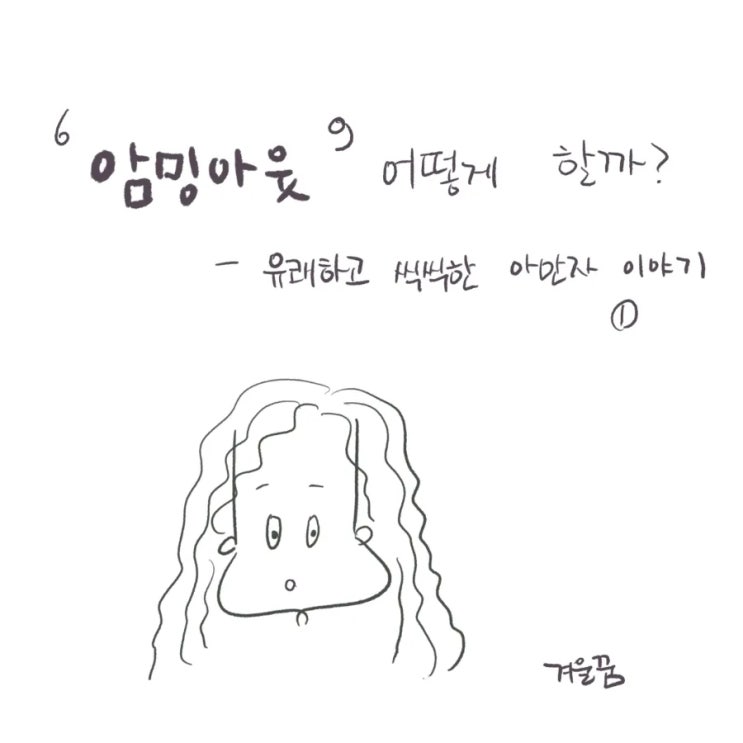 ‘암밍아웃’ 어떻게 할까?
- 유쾌하고 씩씩한 아만자 이야기
①
겨울꿈